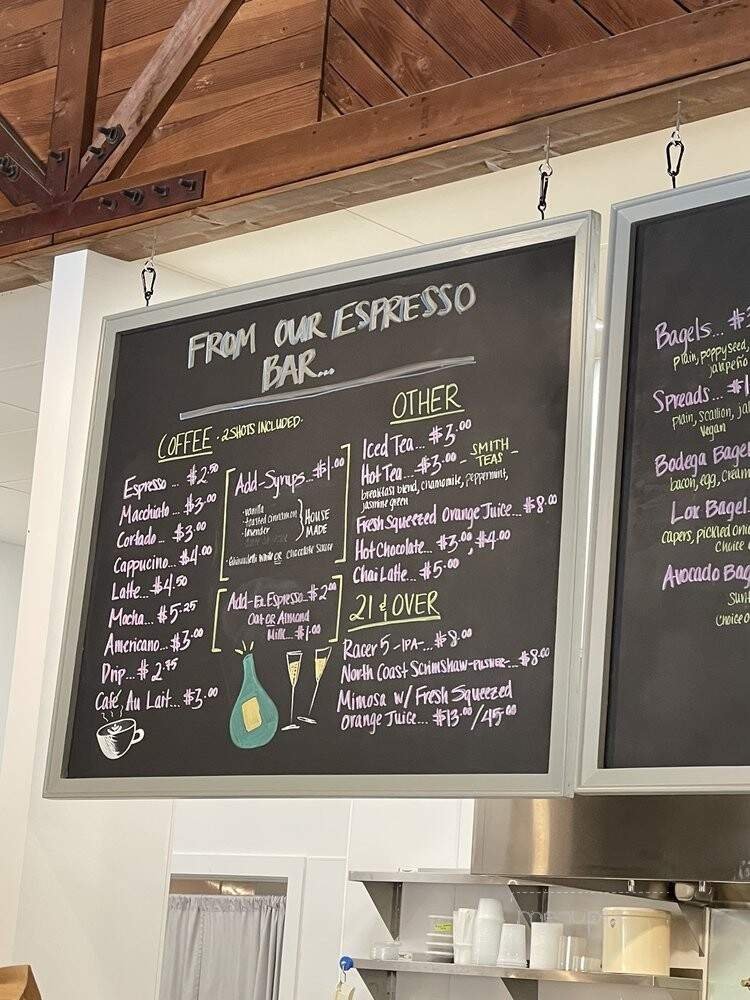 FROM OUR ESPRESSO
BAR...
COFFEE · 2 SHOTS INCLUDED ·
Espresso ... $2.50
Macchiato ... $3.00
Cortado... $3.00
Cappucino... $4.00
Latte... $4.50
Mocha... $5.25
Americano... $3.00
Drip... $2.75
Café Au Lait... $3.00
Add-Syrups... $1.00
-vanilla
-toasted cinnamon
-lavender
HOUSE
MADE
White OR Chocolate Sauce
Add-Ex. Espresso... $2.00
Oat OR Almond
Milk... $1.00
OTHER
Iced Tea... $3.00
Hot Tea... $3.00
- SMITH
TEAS -
breakfast blend, chamomile, peppermint,
jasmine green
Fresh Squeezed Orange Juice... $8.00
Hot Chocolate... $3.00, $4.00
Chai Latte... $5.00
21 & OVER
Racer 5 -IPA-... $8.00
North Coast Scrimshaw -PILSNER-... $8.00
Mimosa w/ Fresh Squeezed
Orange Juice... $13.00/45.00
Bagels... $3
plain, poppyseed,
jalapeño
Spreads... $1
plain, scallion, jal
vegan
Bodega Bagel
bacon, egg, cream
Lox Bagel
capers, pickled oni
choice
Avocado Bag
Sun
choice o